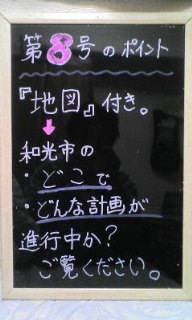 第8号のポイント
『地図』付き。
↓
和光市の
・どこで
・どんな計画が
進行中か?
ご覧ください。